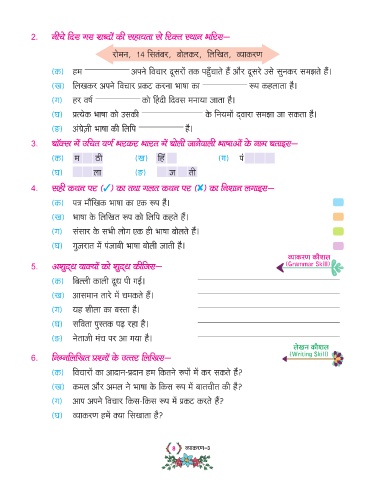 2. नीचे दिए गए शब्दों की सहायता से रिक्त स्थान भरिए–
रोमन, 14 सितंबर, बोलकर, लिखित, व्याकरण
(क) हम अपने विचार दूसरों तक पहुँचाते हैं और दूसरे उसे सुनकर समझते हैं।
(ख) लिखकर अपने विचार प्रकट करना भाषा का रूप कहलाता है।
(ग) हर वर्ष को हिंदी दिवस मनाया जाता है।
(घ) प्रत्येक भाषा को उसकी के नियमों द्वारा समझा जा सकता है।
(ङ) अंग्रेज़ी भाषा की लिपि है।
3. बॉक्स में उचित वर्ण भरकर भारत में बोली जानेवाली भाषाओं के नाम बताइए–
(क) म ठी (ख) हिं (ग) पं
(घ) ला (ङ) ज ती
4. सही कथन पर (✓) का तथा गलत कथन पर (✗) का निशान लगाइए–
(क) पत्र मौखिक भाषा का एक रूप है।
(ख) भाषा के लिखित रूप को लिपि कहते हैं।
(ग) संसार के सभी लोग एक ही भाषा बोलते हैं।
(घ) गुजरात में पंजाबी भाषा बोली जाती है।
व्याकरण कौशल
(Grammar Skill)
5. अशुद्ध वाक्यों को शुद्ध कीजिए–
(क) बिल्ली काली दूध पी गई।
(ख) आसमान तारे में चमकते हैं।
(ग) यह शीला का बस्ता है।
(घ) सविता पुस्तक पढ़ रहा है।
(ङ) नेताजी मंच पर आ गया है।
लेखन कौशल
(Writing Skill)
6. निम्नलिखित प्रश्नों के उत्तर लिखिए–
(क) विचारों का आदान-प्रदान हम कितने रूपों में कर सकते हैं?
(ख) कमल और अमल ने भाषा के किस रूप में बातचीत की है?
(ग) आप अपने विचार किस-किस रूप में प्रकट करते हैं?
(घ) व्याकरण हमें क्या सिखाता है?
8 व्याकरण-3